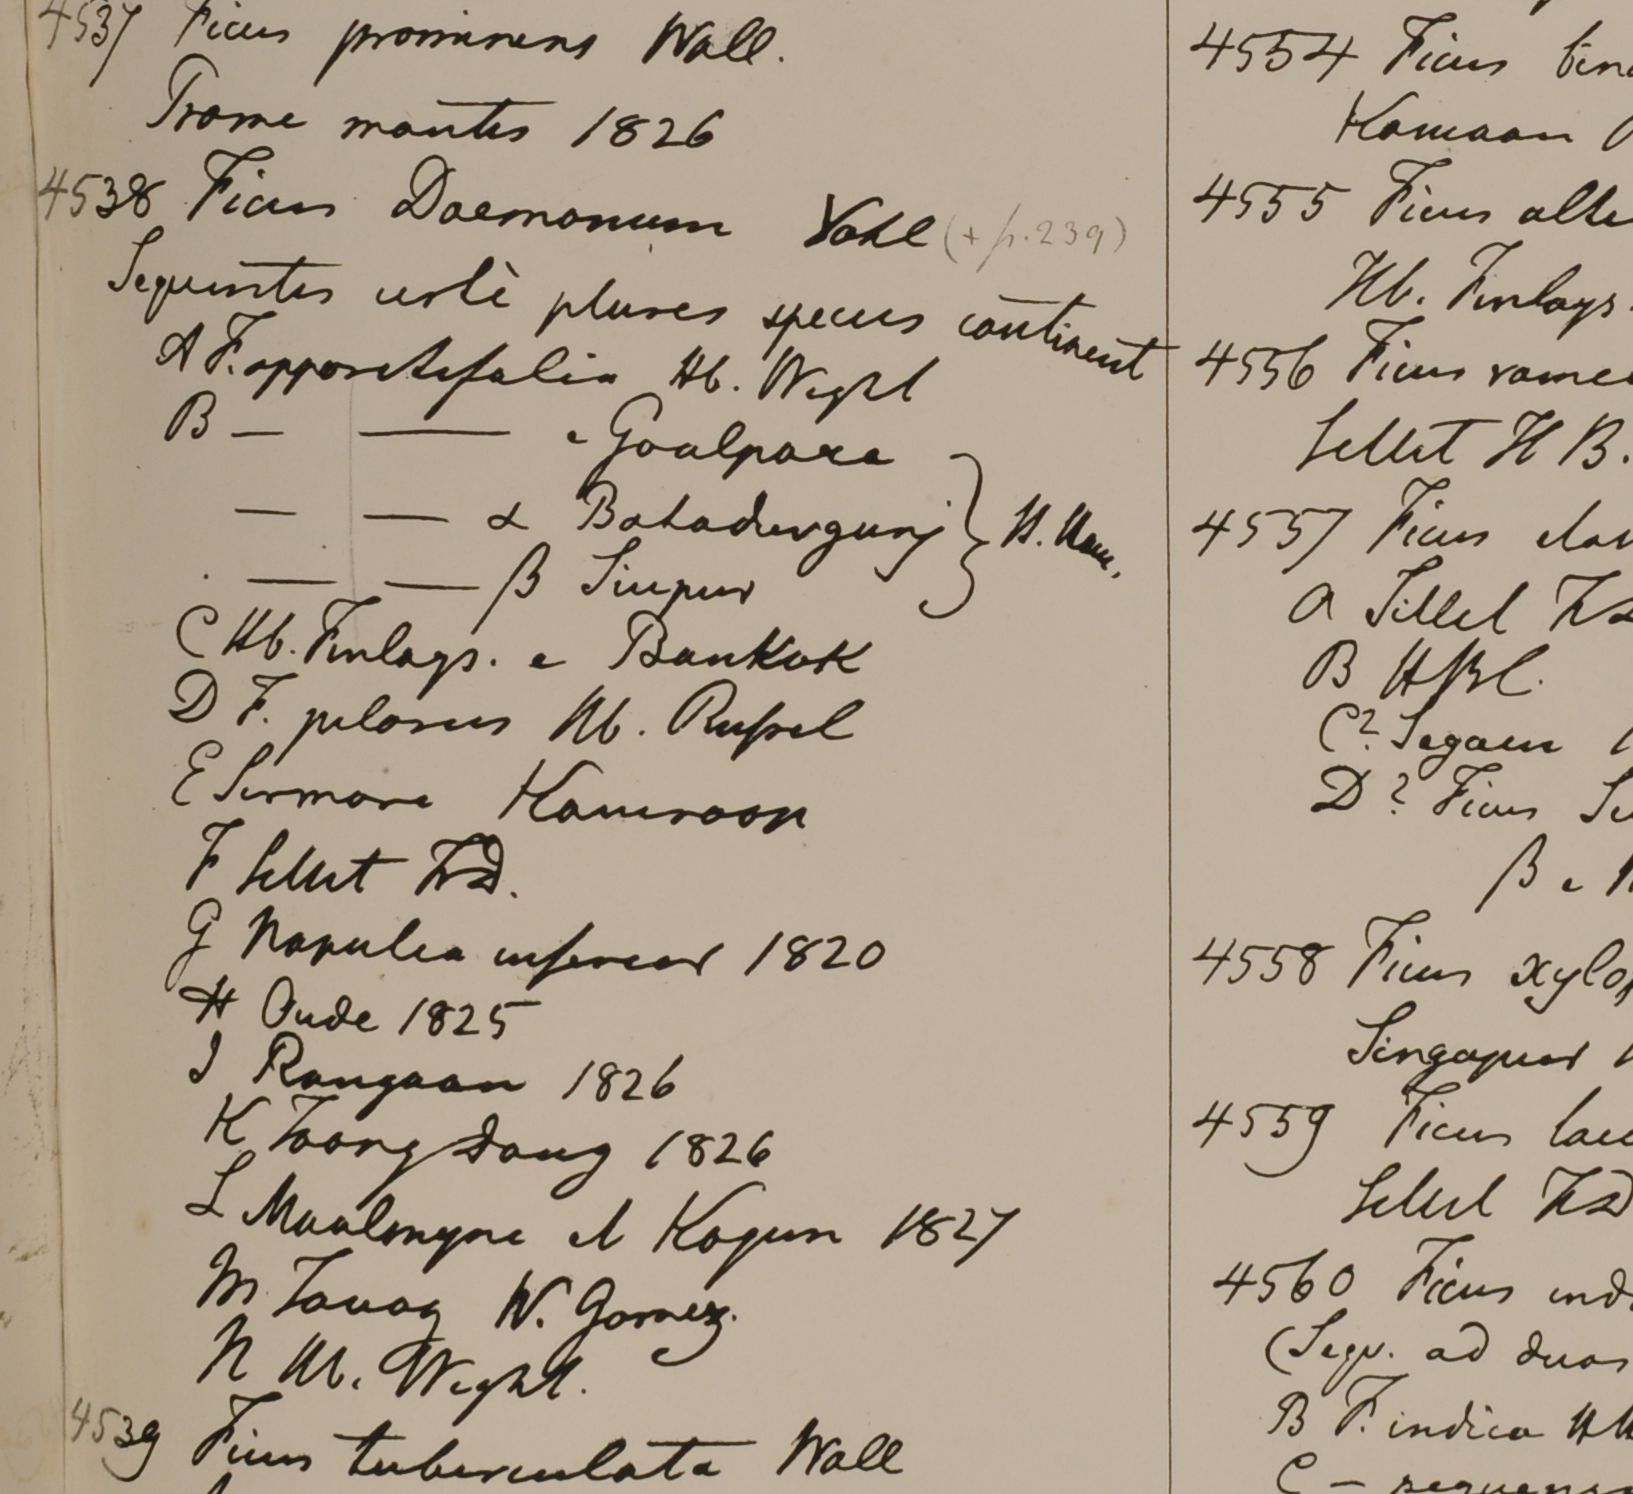 4537 Ficus prominens Wall.
Prome montes 1826
4538 Ficus Daemonum Vahl (+ p. 239)
Sequentes certè plures species continent
A F. oppositifolia Hb. Wight
B — — e Goalpara
— — α Bahadurgunj } H. Ham.
— — β Sirpur
C Hb. Finlays. e Bankok
D F. pilosus Hb. Russel
E Sirmore Kamroop
F Sillet FD.
G Napulia inferior 1820
H Oude 1825
I Rangoon 1826
K Toong Dong 1826
L Moalmyne et Kogun 1827
M Tavoy W. Gomez.
N Hb. Wight.
4539 Ficus tuberculata Wall
4554 Ficus
Kamaon
4555 Ficus
Hb. Finlays.
4556 Ficus
Sillet H B.
4557 Ficus
A Sillet FD
B HBC.
C? Segaen
D? Ficus
β e
4558 Ficus
Singapur
4559 Ficus
Sillet FD
4560 Ficus
(Sequ. ad duas
B F. indica
C —